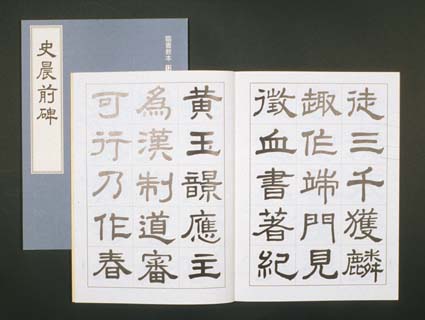 史晨前碑
臨書教本
徒三千獲麟
趣作端門見
徵血書著紀
黄玉應主
為漢制道審
可行乃作春